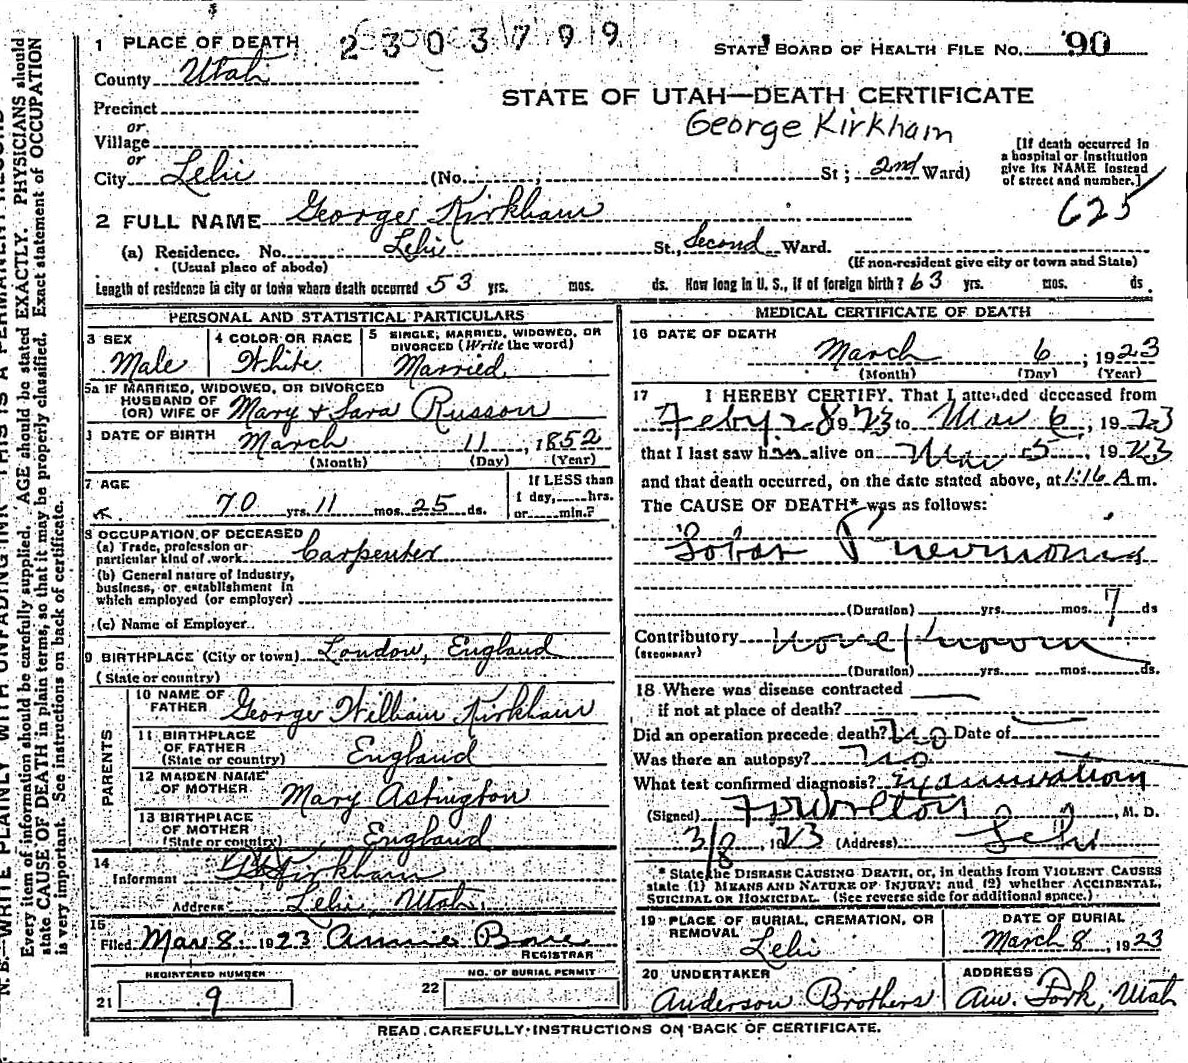 1 PLACE OF DEATH 2303799 STATE BOARD OF HEALTH FILE NO. 90
County Utah
STATE OF UTAH—DEATH CERTIFICATE
Precinct
George Kirkham
or
Village
or
City Lehi (No. St; 2nd Ward)
[If death occurred in
a hospital or institution
give its NAME instead
of street and number.]
625
2 FULL NAME George Kirkham
(a) Residence. No. Lehi St., Second Ward.
(Usual place of abode) (If non-resident give city or town and State)
Length of residence in city or town where death occurred 53 yrs. mos. ds. How long in U. S., if of foreign birth? 63 yrs. mos. ds.
PERSONAL AND STATISTICAL PARTICULARS
3 SEX
Male
4 COLOR OR RACE
White
5 SINGLE, MARRIED, WIDOWED, OR
DIVORCED (Write the word)
Married
5a IF MARRIED, WIDOWED, OR DIVORCED
HUSBAND OF
(OR) WIFE OF Mary & Sara Russon
DATE OF BIRTH March 11, 1852
(Month) (Day) (Year)
7 AGE
70 yrs. 11 mos. 25 ds.
If LESS than
1 day, hrs.
or min.?
8 OCCUPATION OF DECEASED
(a) Trade, profession or
particular kind of work Carpenter
(b) General nature of industry,
business, or establishment in
which employed (or employer)
(c) Name of Employer
9 BIRTHPLACE (City or town) London, England
(State or country)
PARENTS
10 NAME OF
FATHER George William Kirkham
11 BIRTHPLACE
OF FATHER
(State or country) England
12 MAIDEN NAME
OF MOTHER Mary Astington
13 BIRTHPLACE
OF MOTHER
(State or country) England
14
Informant Kirkham
Address Lehi, Utah.
15
Filed Mar 8 1923 Annie
REGISTRAR
REGISTERED NUMBER
21 9
NO. OF BURIAL PERMIT
22
MEDICAL CERTIFICATE OF DEATH
16 DATE OF DEATH
March 6, 1923
(Month) (Day) (Year)
17 I HEREBY CERTIFY, That I attended deceased from
Feby 28 1923 to Mar 6, 1923
that I last saw him alive on Mar 5, 1923
and that death occurred, on the date stated above, at 1:16 A m.
The CAUSE OF DEATH* was as follows:
Lobar Pneumonia
(Duration) yrs. mos. 7 ds
Contributory None Known
(SECONDARY)
(Duration) yrs. mos. ds.
18 Where was disease contracted
if not at place of death?
Did an operation precede death? No Date of
Was there an autopsy? No
What test confirmed diagnosis? Examination
(Signed) M. D.
3/8, 1923 (Address) Lehi
* State the DISEASE CAUSING DEATH, or, in deaths from VIOLENT CAUSES
state (1) MEANS AND NATURE OF INJURY; and (2) whether ACCIDENTAL,
SUICIDAL OR HOMICIDAL. (See reverse side for additional space.)
19 PLACE OF BURIAL, CREMATION, OR
REMOVAL
Lehi
DATE OF BURIAL
March 8, 1923
20 UNDERTAKER
Anderson Brothers
ADDRESS
Am. Fork, Utah
READ CAREFULLY INSTRUCTIONS ON BACK OF CERTIFICATE.
N. B.—WRITE PLAINLY WITH UNFADING INK—THIS IS A PERMANENT RECORD
Every item of information should be carefully supplied. AGE should be stated EXACTLY. PHYSICIANS should
state CAUSE OF DEATH in plain terms, so that it may be properly classified. Exact statement of OCCUPATION
is very important. See instructions on back of certificate.